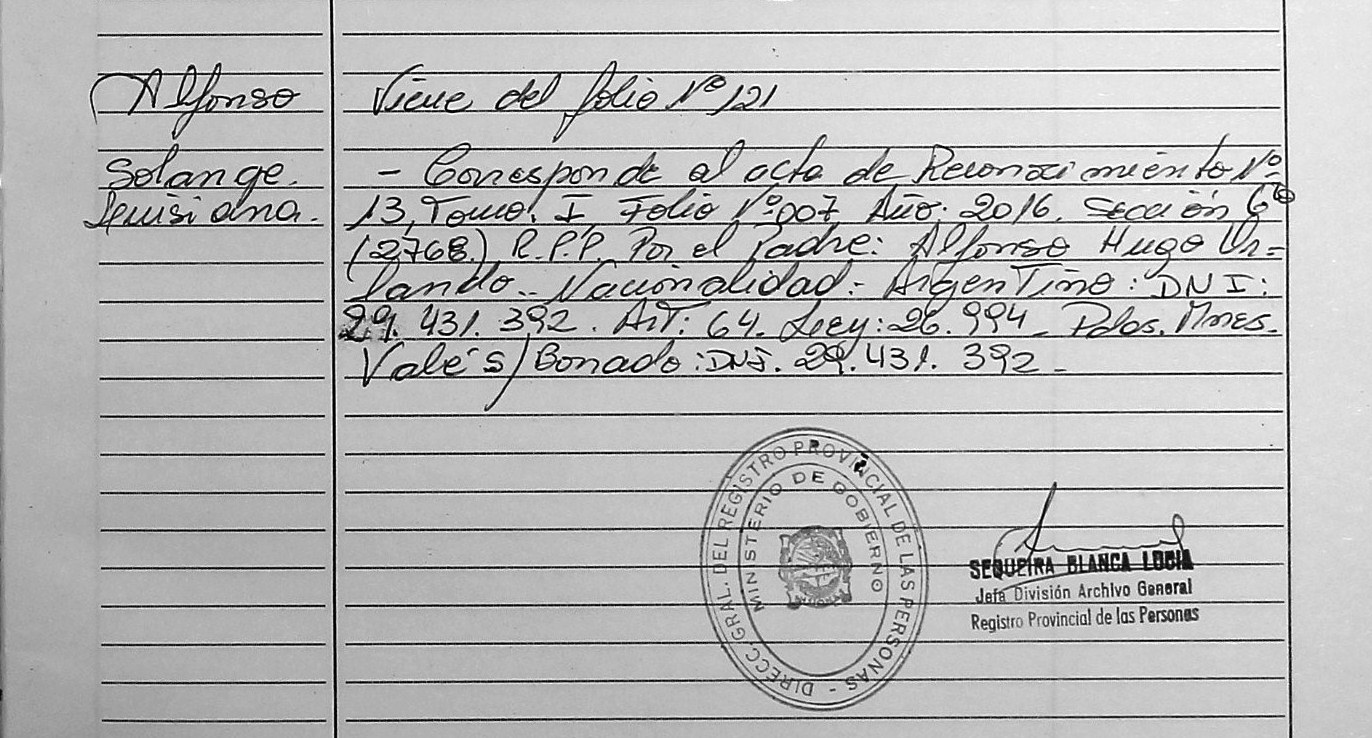 Alfonso
Solange.
Viene del folio Nº 121
- Corresponde al acta de Reconocimiento Nº
13, Tomo: I, Folio Nº 007 Año: 2016. Sección 6º
(2768) R.P.P. Por el Padre: Alfonso Hugo Or=
lando.- Nacionalidad: Argentino: DNI:
29.431.392. Art: 64. Ley: 26.994 - Pdos.
Vale's/ :DNI. 29.431.392-
DIRECC. GRAL. DEL REGISTRO PROVINCIAL DE LAS PERSONAS -
MINISTERIO DE GOBIERNO
SEQUEIRA BLANCA LUCIA
Jefa División Archivo General
Registro Provincial de las Personas